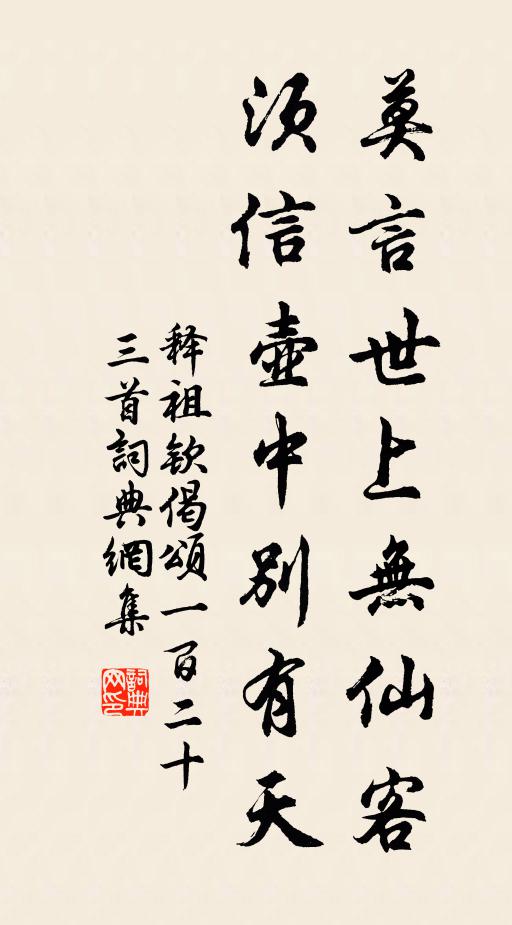 莫言世上無仙客
須信壺中別有天
释祖欽偈頌一百二十
三首詞典網集
詞典网印